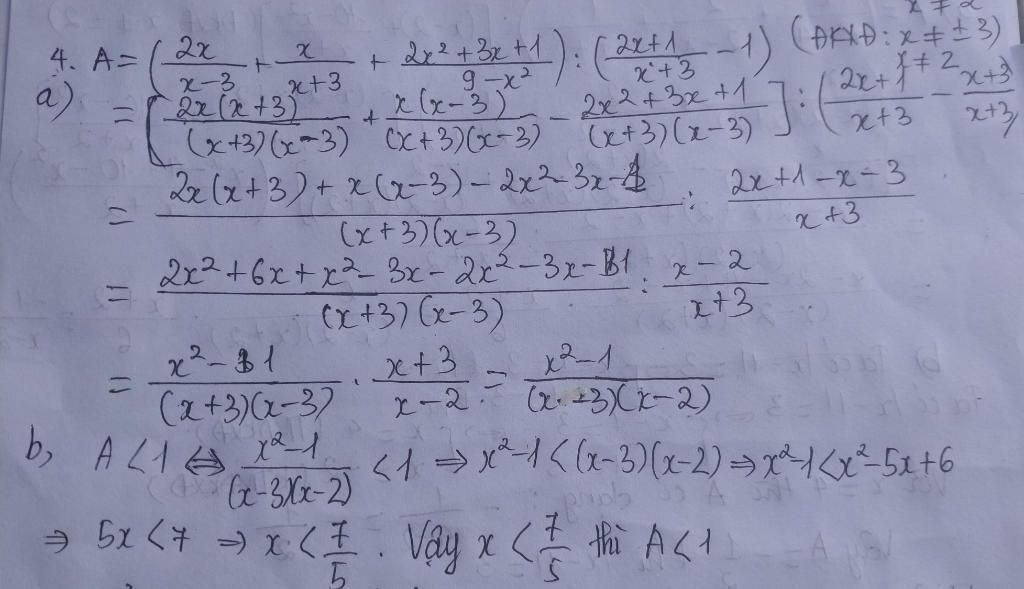 x ≠ 2
4. A = (2x/(x-3) + x/(x+3) + (2x² + 3x + 1)/(9 - x²)) : ((2x+1)/(x+3) - 1) (ĐKXĐ: x ≠ ±3)
x ≠ 2
a) = [2x(x+3)/((x+3)(x-3)) + x(x-3)/((x+3)(x-3)) - (2x² + 3x + 1)/((x+3)(x-3))] : ((2x+1)/(x+3) - (x+3)/(x+3)
= (2x(x+3) + x(x-3) - 2x² - 3x - 1)/((x+3)(x-3)) : (2x+1-x-3)/(x+3)
= (2x² + 6x + x² - 3x - 2x² - 3x - 1)/((x+3)(x-3)) : (x-2)/(x+3)
= (x² - 1)/((x+3)(x-3)) · (x+3)/(x-2) = (x² - 1)/((x-3)(x-2))
b, A < 1 ⇔ (x²-1)/((x-3)(x-2)) < 1 ⇒ x²-1 < (x-3)(x-2) ⇒ x²-1 < x²-5x+6
⇒ 5x < 7 ⇒ x < 7/5 . Vậy x < 7/5 thì A < 1